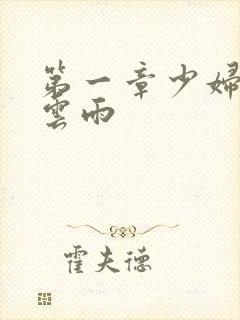 第一章少婦
雲雨
霍夫德